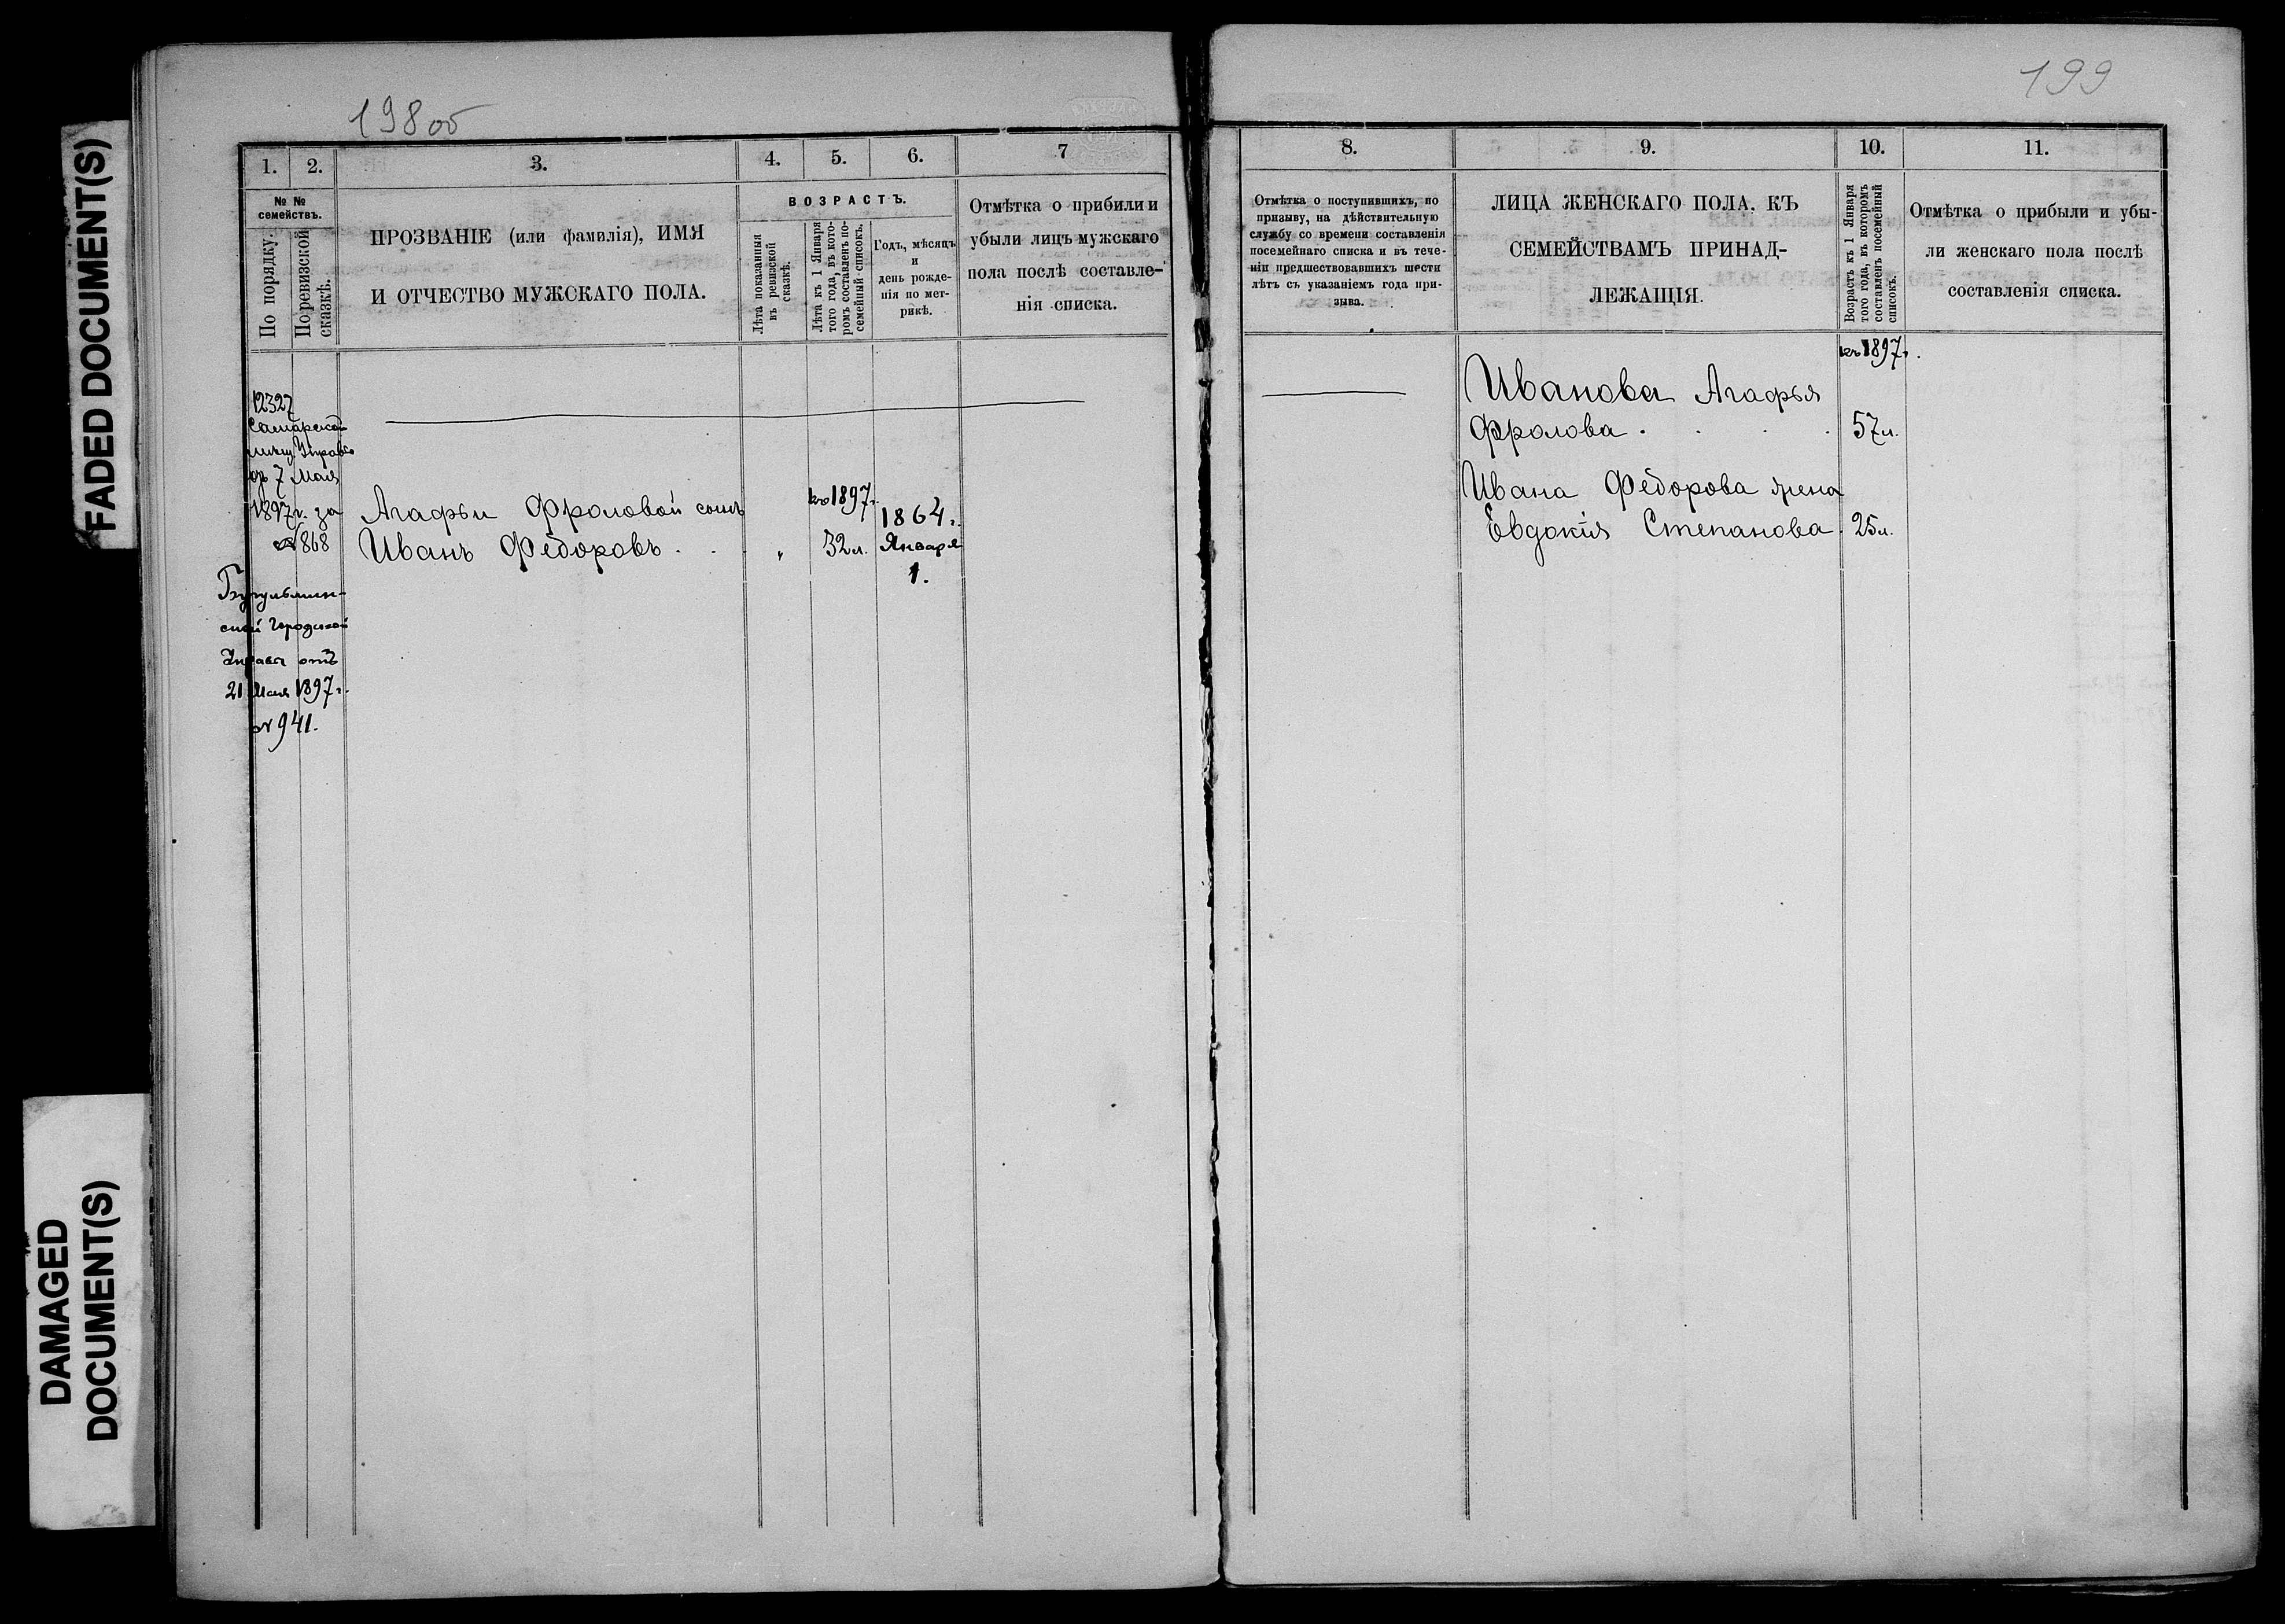 FADED DOCUMENT(S)
DAMAGED
DOCUMENT(S)
198об
1. 2. 3. 4. 5. 6. 7
№ №
семействъ.
По порядку.
По ревизской
сказкѣ.
ПРОЗВАНІЕ (или фамилія), ИМЯ
И ОТЧЕСТВО МУЖСКАГО ПОЛА.
ВОЗРАСТЪ.
Лѣта показанія
въ ревизской
сказкѣ.
Лѣта къ 1 Января
того года, въ кото-
ромъ составленъ по-
семейный списокъ.
Годъ, мѣсяцъ
и
день рожде-
нія по мет-
рикѣ.
Отмѣтка о прибыли и
убыли лицъ мужскаго
пола послѣ составле-
нія списка.
12327
Самарской
мѣщ. Управы
отъ 7 Мая
1897 г. за
№ 868
Бугульмин-
ской Городской
Управы отъ
21 Мая 1897 г.
№ 941.
Агафьи Фроловой сынъ
Иванъ Федоровъ . . "
къ 1897 г.
32 л.
1864 г.
Января
1.
199
8. 9. 10. 11.
Отмѣтка о поступившихъ, по
призыву, на дѣйствительную
службу со времени составленія
посемейнаго списка и въ тече-
ніи предшествовавшихъ шести
лѣтъ съ указаніемъ года при-
зыва.
ЛИЦА ЖЕНСКАГО ПОЛА. КЪ
СЕМЕЙСТВАМЪ ПРИНАД-
ЛЕЖАЩІЯ.
Возрастъ къ 1 Января
того года, въ которомъ
составленъ посемейный
списокъ.
Отмѣтка о прибыли и убы-
ли женскаго пола послѣ
составленія списка.
къ 1897 г.
Иванова Агафья
Фролова . . . . 57 л.
Ивана Федорова жена
Евдокія Степанова . 25 л.